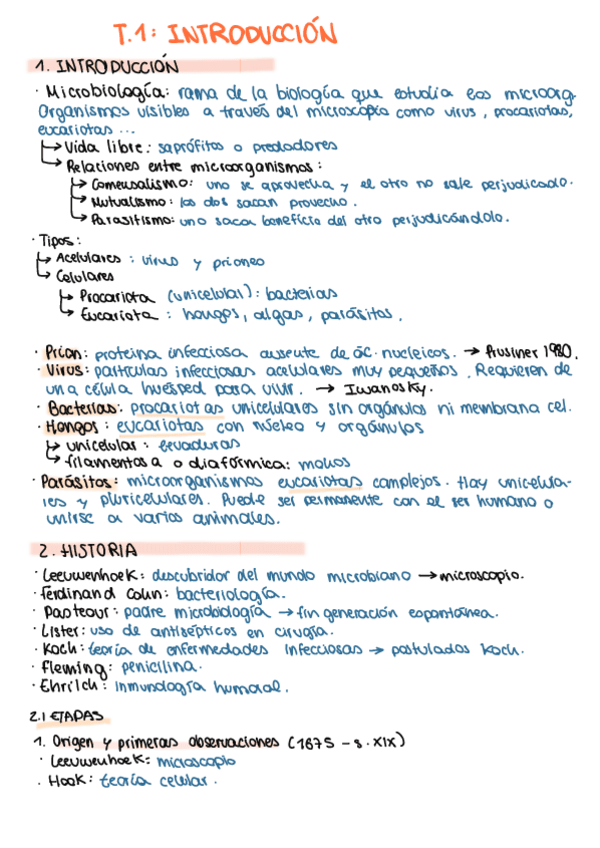 T.1: INTRODUCCIÓN
1. INTRODUCCIÓN
· Microbiología: rama de la biología que estudia los microorg.
Organismos visibles a través del microscopio como virus, procariotas,
eucariotas ...
↳ Vida libre: saprófitos o predadores
↳ Relaciones entre microorganismos:
↳ Comensalismo: uno se aprovecha y el otro no sale perjudicado.
↳ Mutualismo: los dos sacan provecho.
↳ Parasitismo: uno saca beneficio del otro perjudicándolo.
· Tipos:
↳ Acelulares: virus y priones
↳ Celulares
↳ Procariota (unicelular): bacterias
↳ Eucariota: hongos, algas, parásitos.
· Prión: proteína infecciosa ausente de ác. nucleicos. → Prusiner 1980.
· Virus: partículas infecciosas acelulares muy pequeños. Requieren de
una célula huésped para vivir. → Iwanosky.
· Bacterias: procariotas unicelulares sin orgánulos ni membrana cel.
· Hongos: eucariotas con núcleo y orgánulos
↳ unicelular: levaduras
↳ filamentosa o diafórmica: mohos
· Parásitos: microorganismos eucariotas complejos. Hay unicelula-
res y pluricelulares. Puede ser permanente con el ser humano o
unirse a varios animales.
2. HISTORIA
· Leeuwenhoek: descubridor del mundo microbiano → microscopio.
· Ferdinand Cohn: bacteriología.
· Pasteur: padre microbiología → fin generación espontánea.
· Lister: uso de antisépticos en cirugía.
· Koch: teoría de enfermedades infecciosas → postulados Koch.
· Fleming: penicilina.
· Ehrlich: inmunología humoral.
2.1 ETAPAS
1. Origen y primeras observaciones (1675 - s. XIX)
· Leeuwenhoek: microscopio
· Hook: teoría celular.